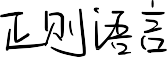 正则语言